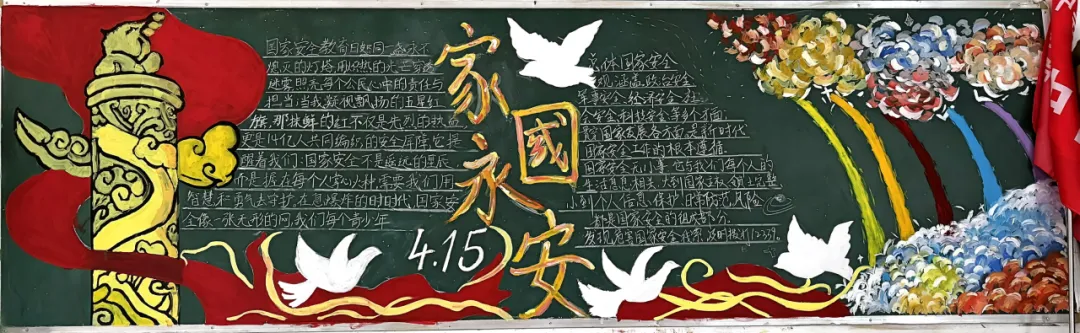 国家安全教育日如同一盏永不
熄灭的灯塔用炽热的光芒穿透
迷雾照亮每个公民心中的责任与
担当当我凝视飘扬的五星红
旗,那抹鲜的红不仅是先烈的热血
更是14亿人共同编织的安全屏障,它提
醒着我们:国家安全不是遥远的星辰
而是握在每个人掌心火种,需要我们用
智慧和勇气去守护,在息爆炸的时时代,国家安
全像一张无形的网,我们每个青少年
家國永安
4.15
总体国家安全
观,涵盖政治安全
军事安全、经济安全、社
会安全科技安全等多个方面,
国家发展各方面,是新时代
国家安全工作的根本遵循。
国家安全无小事,它与我们每个人的
生活息息相关,大到国家主权、领土完整,
小到个人信息保护 防范风险
都是国家安全的组成部分。
发现危害国家安全 及时拨打12339。